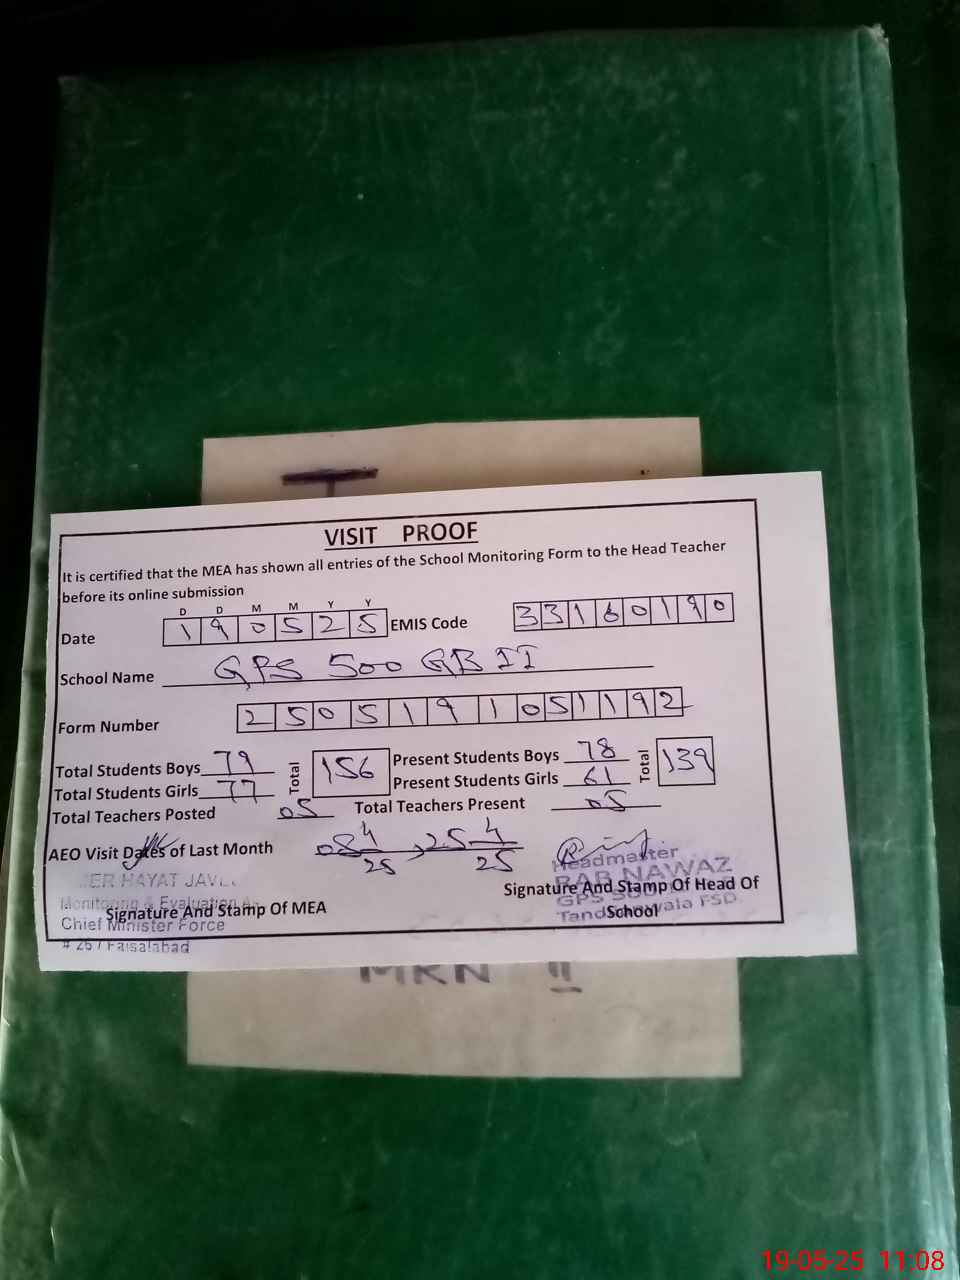 VISIT PROOF
It is certified that the MEA has shown all entries of the School Monitoring Form to the Head Teacher
before its online submission
D D M M Y Y
Date 1 9 0 5 2 5 EMIS Code 3 3 1 6 0 1 9 0
School Name GPS 500 GB II
Form Number 2 5 0 5 1 9 1 0 5 1 1 9 2
Total Students Boys 79 Total 156 Present Students Boys 78 Total 139
Total Students Girls 77 Present Students Girls 61
Total Teachers Posted 05 Total Teachers Present 05
AEO Visit Dates of Last Month 08 4/25, 25 4/25
Headmaster
RAB NAWAZ
HAYAT
Signature And Stamp Of Head Of
School
GPS
Tandlianwala FSD
Monitoring & Evaluation
Signature And Stamp Of MEA
Chief Minister Force
Faisalabad
MRN II
19-05-25 11:08